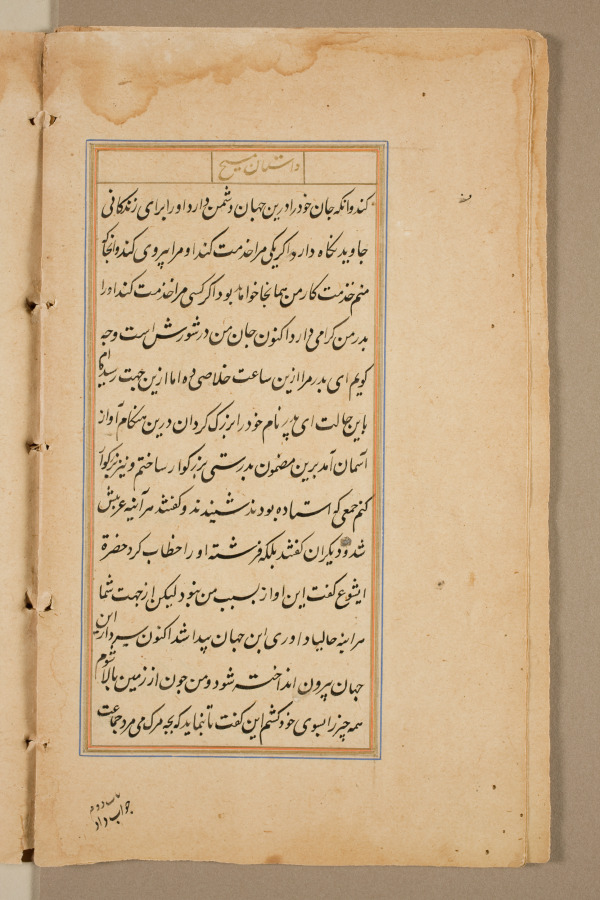 داستان مسیح
کند وانکه جان خود را درین جهان دشمن دارد او را برای زندکانی
جاوید نکاه دارد اکر یکی مرا خدمت کند او مرا پیروی کند وانجا که
منم خدمت کار من همانجا خواهد بود اکر کسی مرا خدمت کند او را
پدر من کرامی دارد اکنون جان من در شورش است و چه
کویم ای پدر مرا ازین ساعت خلاصی ده اما ازین جهت رسیده‌ام
باین حالت ای پدر نام خود را بزرک کردان درین هنکام آواز
آسمان آمد برین مضمون بدرستی بزرکوار ساختم و نیز بزرکوار
کنم جمعی که استاده بودند شنیدند و کفتند هر آینه غرش
شد و دیکران کفتند بلکه فرشته او را خطاب کرد حضرة
ایشوع کفت این اواز بسبب من نبود لیکن از جهت شما
هر اینه حالیا داوری این جهان پیدا شد اکنون سردار این
جهان بیرون انداخته شود و من چون از زمین بالا شوم
همه چیز را بسوی خود کشم این کفت تا نماید که بچه مرک می مرد جماعت
باب دوم
جواب داد